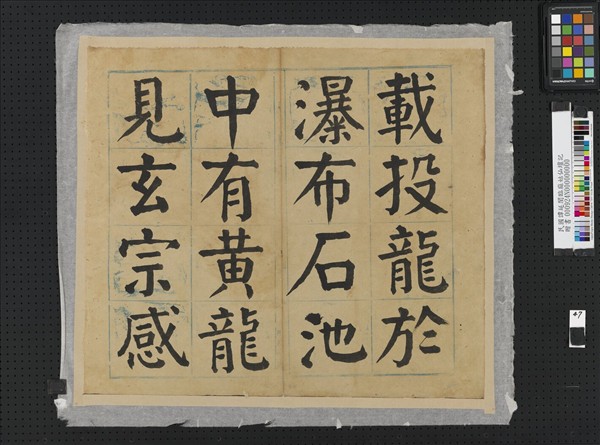 載投龍於
瀑布石池
中有黃龍
見玄宗感
47